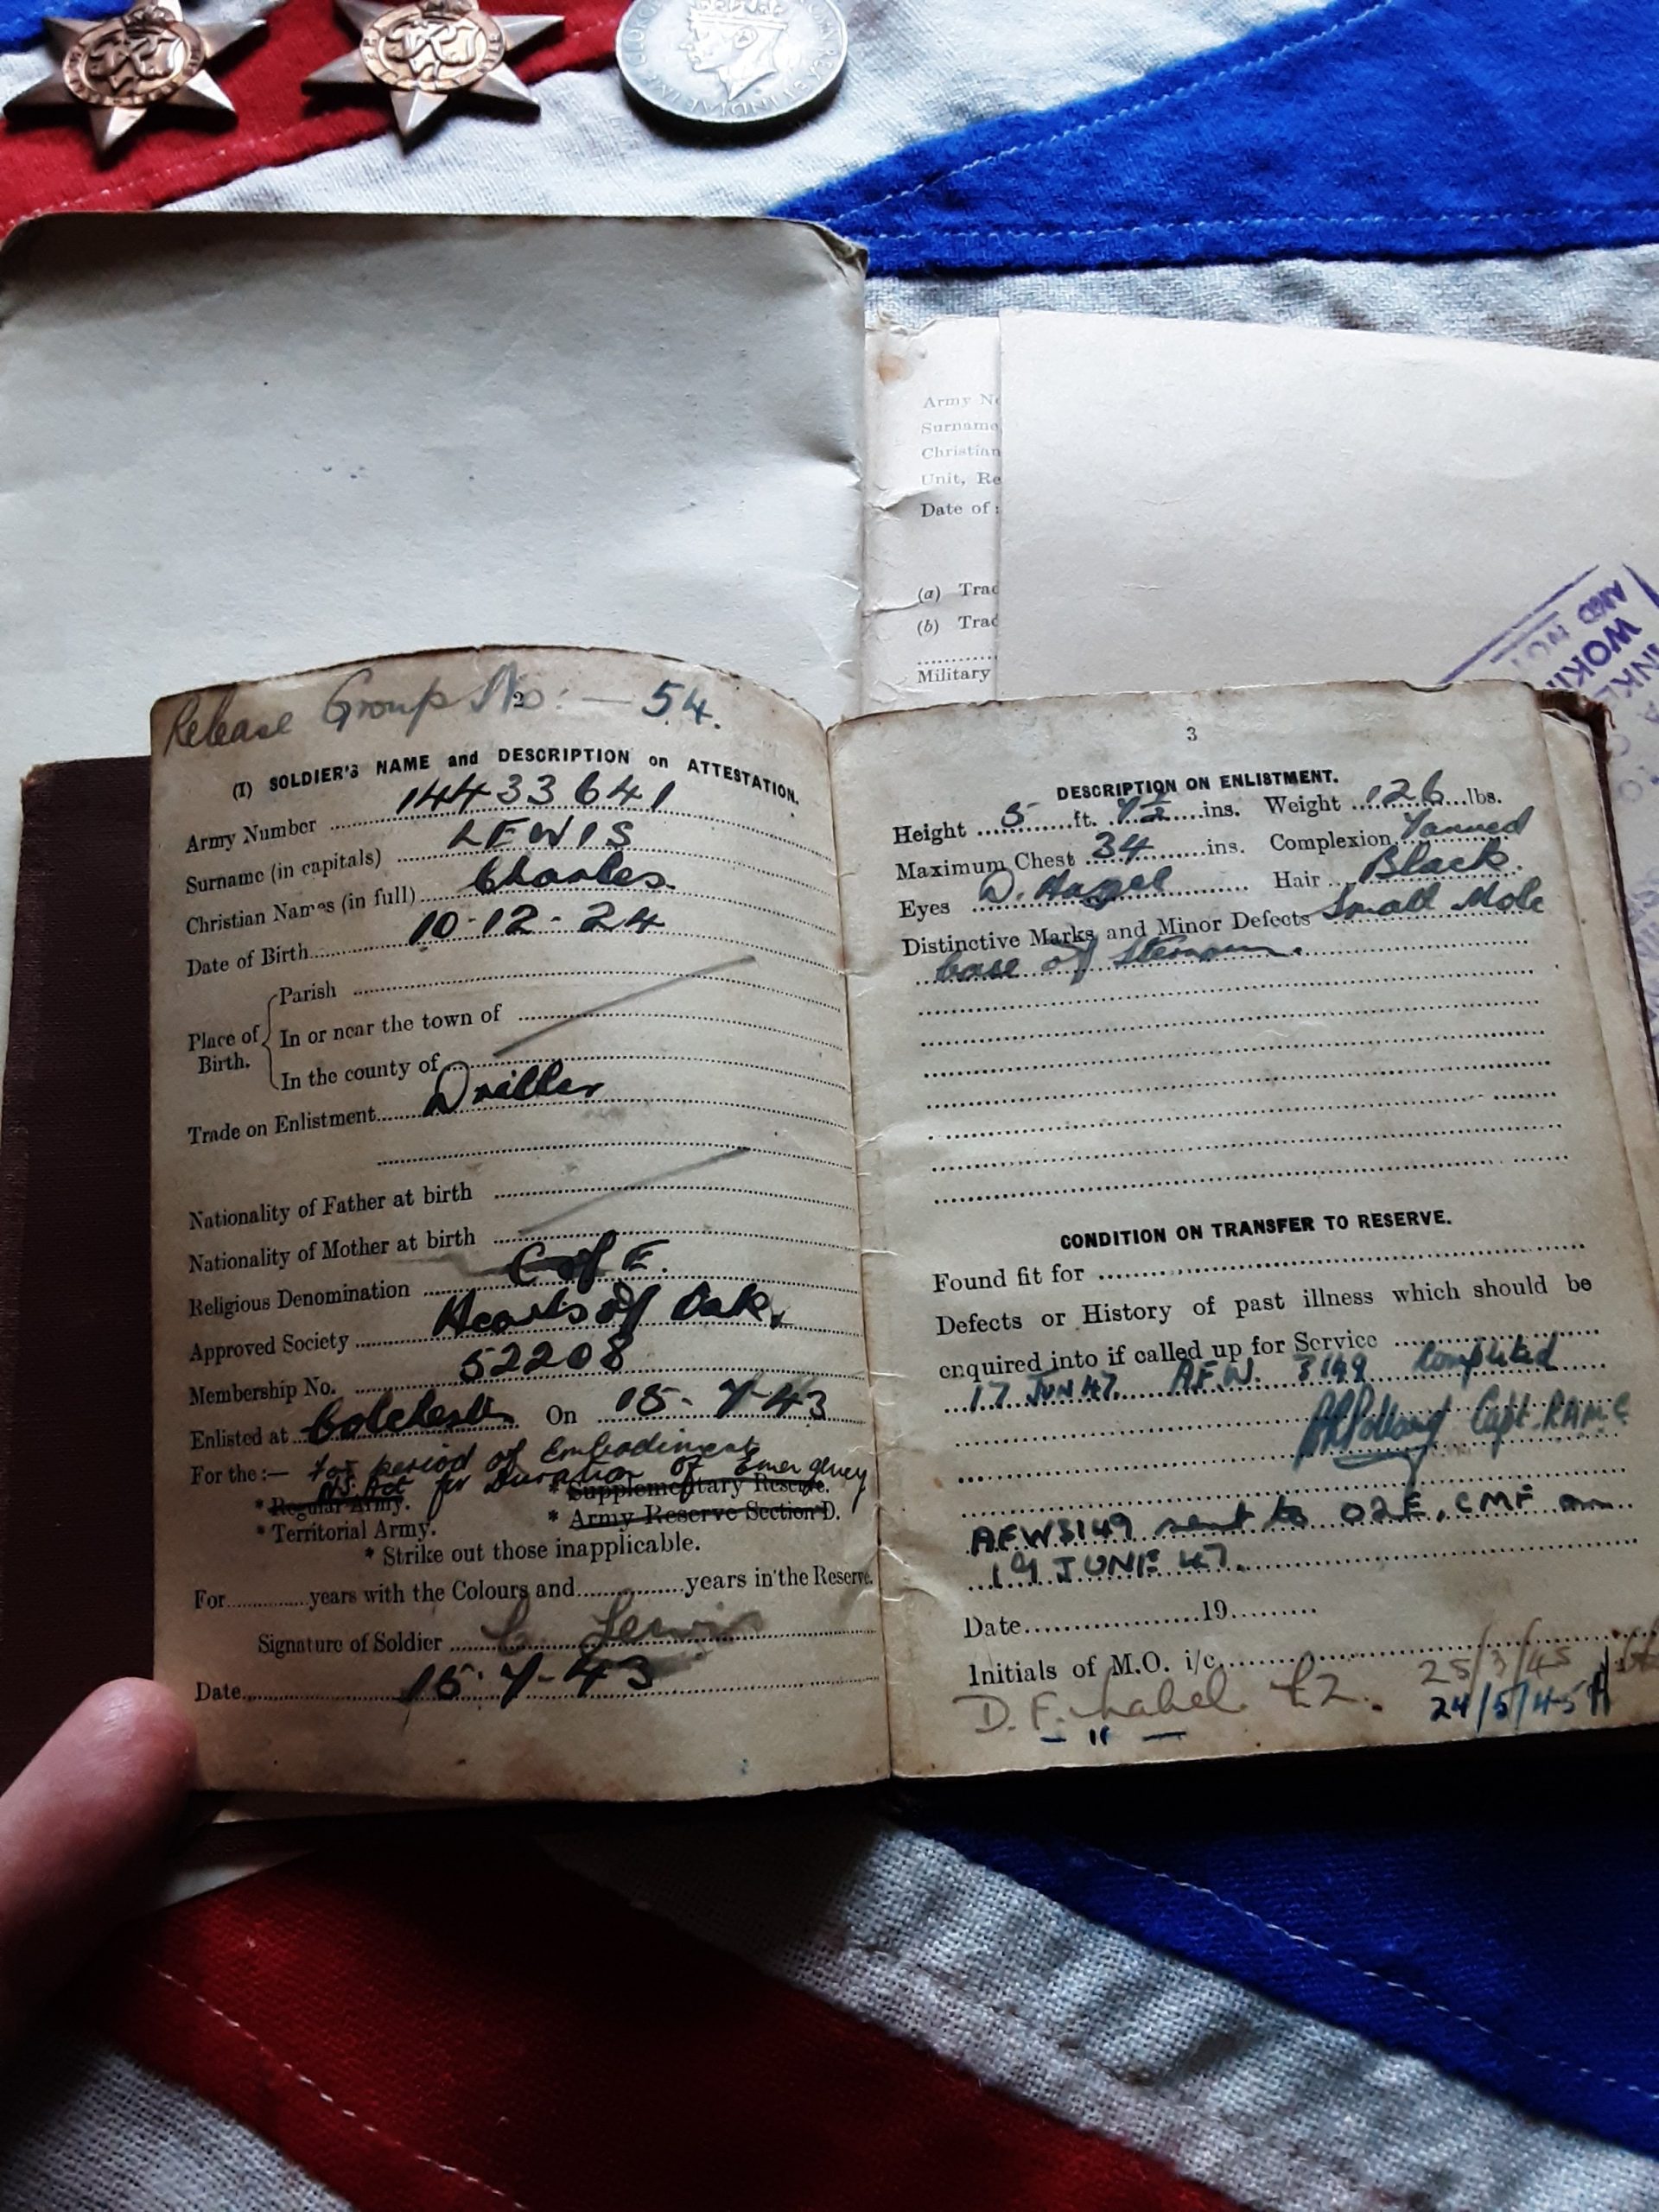 ET INDIAE IMP
Army N
Surname
Christian
Unit, Re
Date of
(a) Trad
(b) Trad
Military
AND NOT
WOKI
Release Group No: - 54.
2
(I) SOLDIER'S NAME and DESCRIPTION on ATTESTATION.
Army Number 14433641
Surname (in capitals) LEWIS
Christian Names (in full) Charles
Date of Birth 10-12-24
Place of Birth.
Parish
In or near the town of
In the county of
Trade on Enlistment Driller
Nationality of Father at birth
Nationality of Mother at birth
Religious Denomination C of E.
Approved Society Hearts of Oak.
Membership No. 52208
Enlisted at Colchester On 15-7-43
For the:— For period of Embodiment
NS Act for Duration of Emergency
* Regular Army. * Supplementary Reserve.
* Territorial Army. * Army Reserve Section D.
* Strike out those inapplicable.
For years with the Colours and years in the Reserve.
Signature of Soldier C. Lewis
Date 15-7-43
3
DESCRIPTION ON ENLISTMENT.
Height 5 ft. 7½ ins. Weight 126 lbs.
Maximum Chest 34 ins. Complexion Tanned
Eyes D. Hazel Hair Black.
Distinctive Marks and Minor Defects Small Mole
base of Sternum.
CONDITION ON TRANSFER TO RESERVE.
Found fit for
Defects or History of past illness which should be
enquired into if called up for Service
17 JUN 47. A.F.W. 3149 Completed
Capt. RAMC
AFW3149 sent to O2E, CMF on
19 JUNE 47.
Date 19
Initials of M.O. i/c
D.F. 25/3/45
— " — 24/5/45